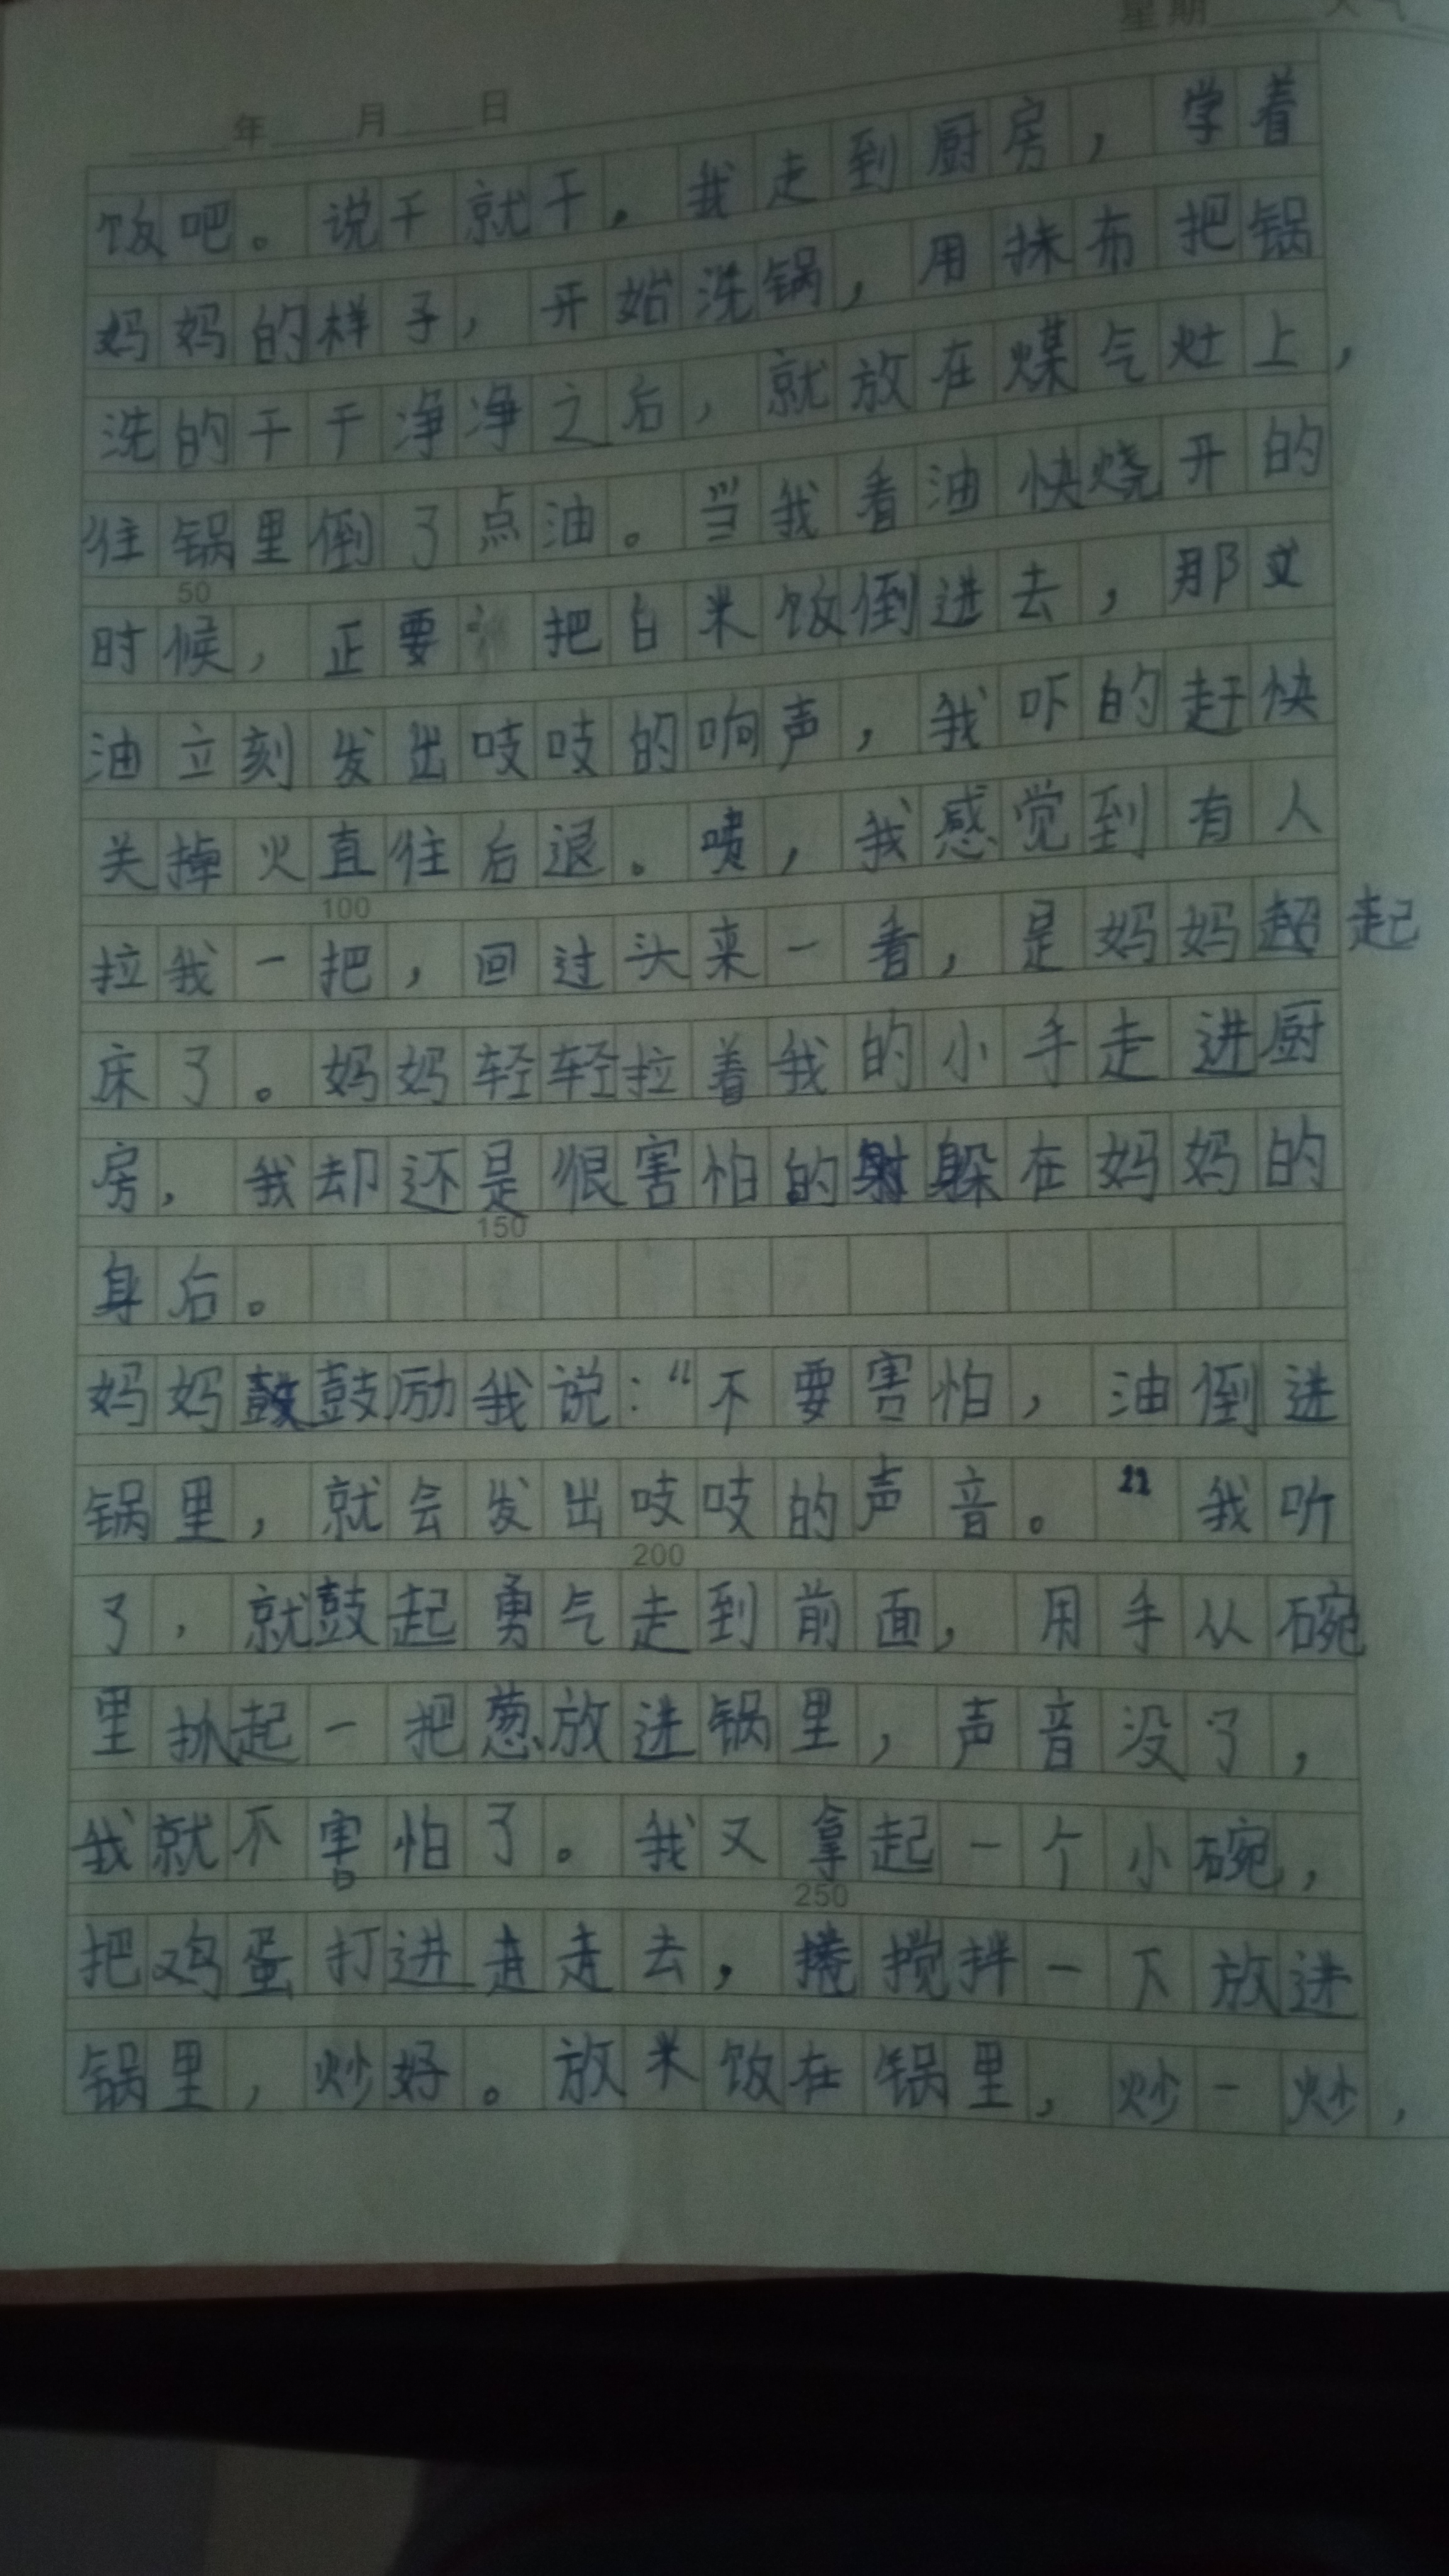 星期____天气
____年____月____日
饭吧。说干就干。我走到厨房，学着
妈妈的样子，开始洗锅，用抹布把锅
洗的干干净净之后，就放在煤气灶上，
往锅里倒了点油。当我看油快烧开的
50
时候，正要把白米饭倒进去，那
油立刻发出吱吱的响声，我吓的赶快
关掉火直往后退。啧，我感觉到有人
100
拉我一把，回过头来一看，是妈妈起
床了。妈妈轻轻拉着我的小手走进厨
房，我却还是很害怕的躲在妈妈的
150
身后。
妈妈鼓励我说：“不要害怕，油倒进
锅里，就会发出吱吱的声音。”我听
200
了，就鼓起勇气走到前面，用手从碗
里抓起一把葱放进锅里，声音没了，
我就不害怕了。我又拿起一个小碗，
250
把鸡蛋打进去，搅拌一下放进
锅里，炒好。放米饭在锅里，炒一炒，